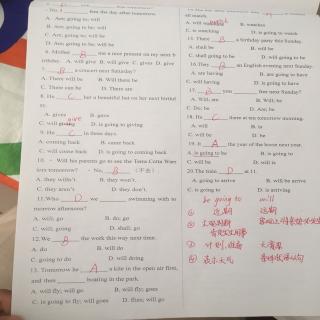 the day after tomorrow.
A. Are; going to; will
B. Are; going to be; will
C. Are; going to; will be
D. Are; going to be; will
6. Mother B me a nice present on my next birthday.
A. will gives B. will give C. gives D. give
B a concert next Saturday?
A. There will be B. Will there be
C. There can be D. There are
8. He C her a beautiful hat on her next birthday.
A. gives B. gave
C. will giving give D. is going to giving
9. He C in three days.
A. coming back B. came back
C. will come back D. is going to coming back
10. - Will his parents go to see the Terra Cotta Warriors tomorrow? - No, B (不去)
A. they willn't. B. they won't.
C. they aren't. D. they don't.
11. Who D we swimming with tomorrow afternoon?
A. will; go B. do; go
C. will; going D. shall; go
12. We B the work this way next time.
A. do B. will do
C. going to do D. will doing
13. Tomorrow he A a kite in the open air first, and then boating in the park.
A. will fly; will go B. will fly; goes
C. is going to fly; will goes D. flies; will go
all match.
B. watches
C. is watching D. is going to watch
There B a birthday party this Sunday.
A. shall be B. will be
C. shall going to be D. will going to be
16. They B an English evening next Sunday.
A. are having B. are going to have
C. will having D. is going to have
17. B you free next Sunday?
A. Will; are B. Will; be
C. Do; be D. Are; be
18. He C there at ten tomorrow morning.
A. will B. is
C. will be D. be
19. It A the year of the horse next year.
A. is going to be B. is going to
C. will be D. will is
20. The train D at 11.
A. going to arrive B. will be arrive
C. is going to D. is arriving
be going to will